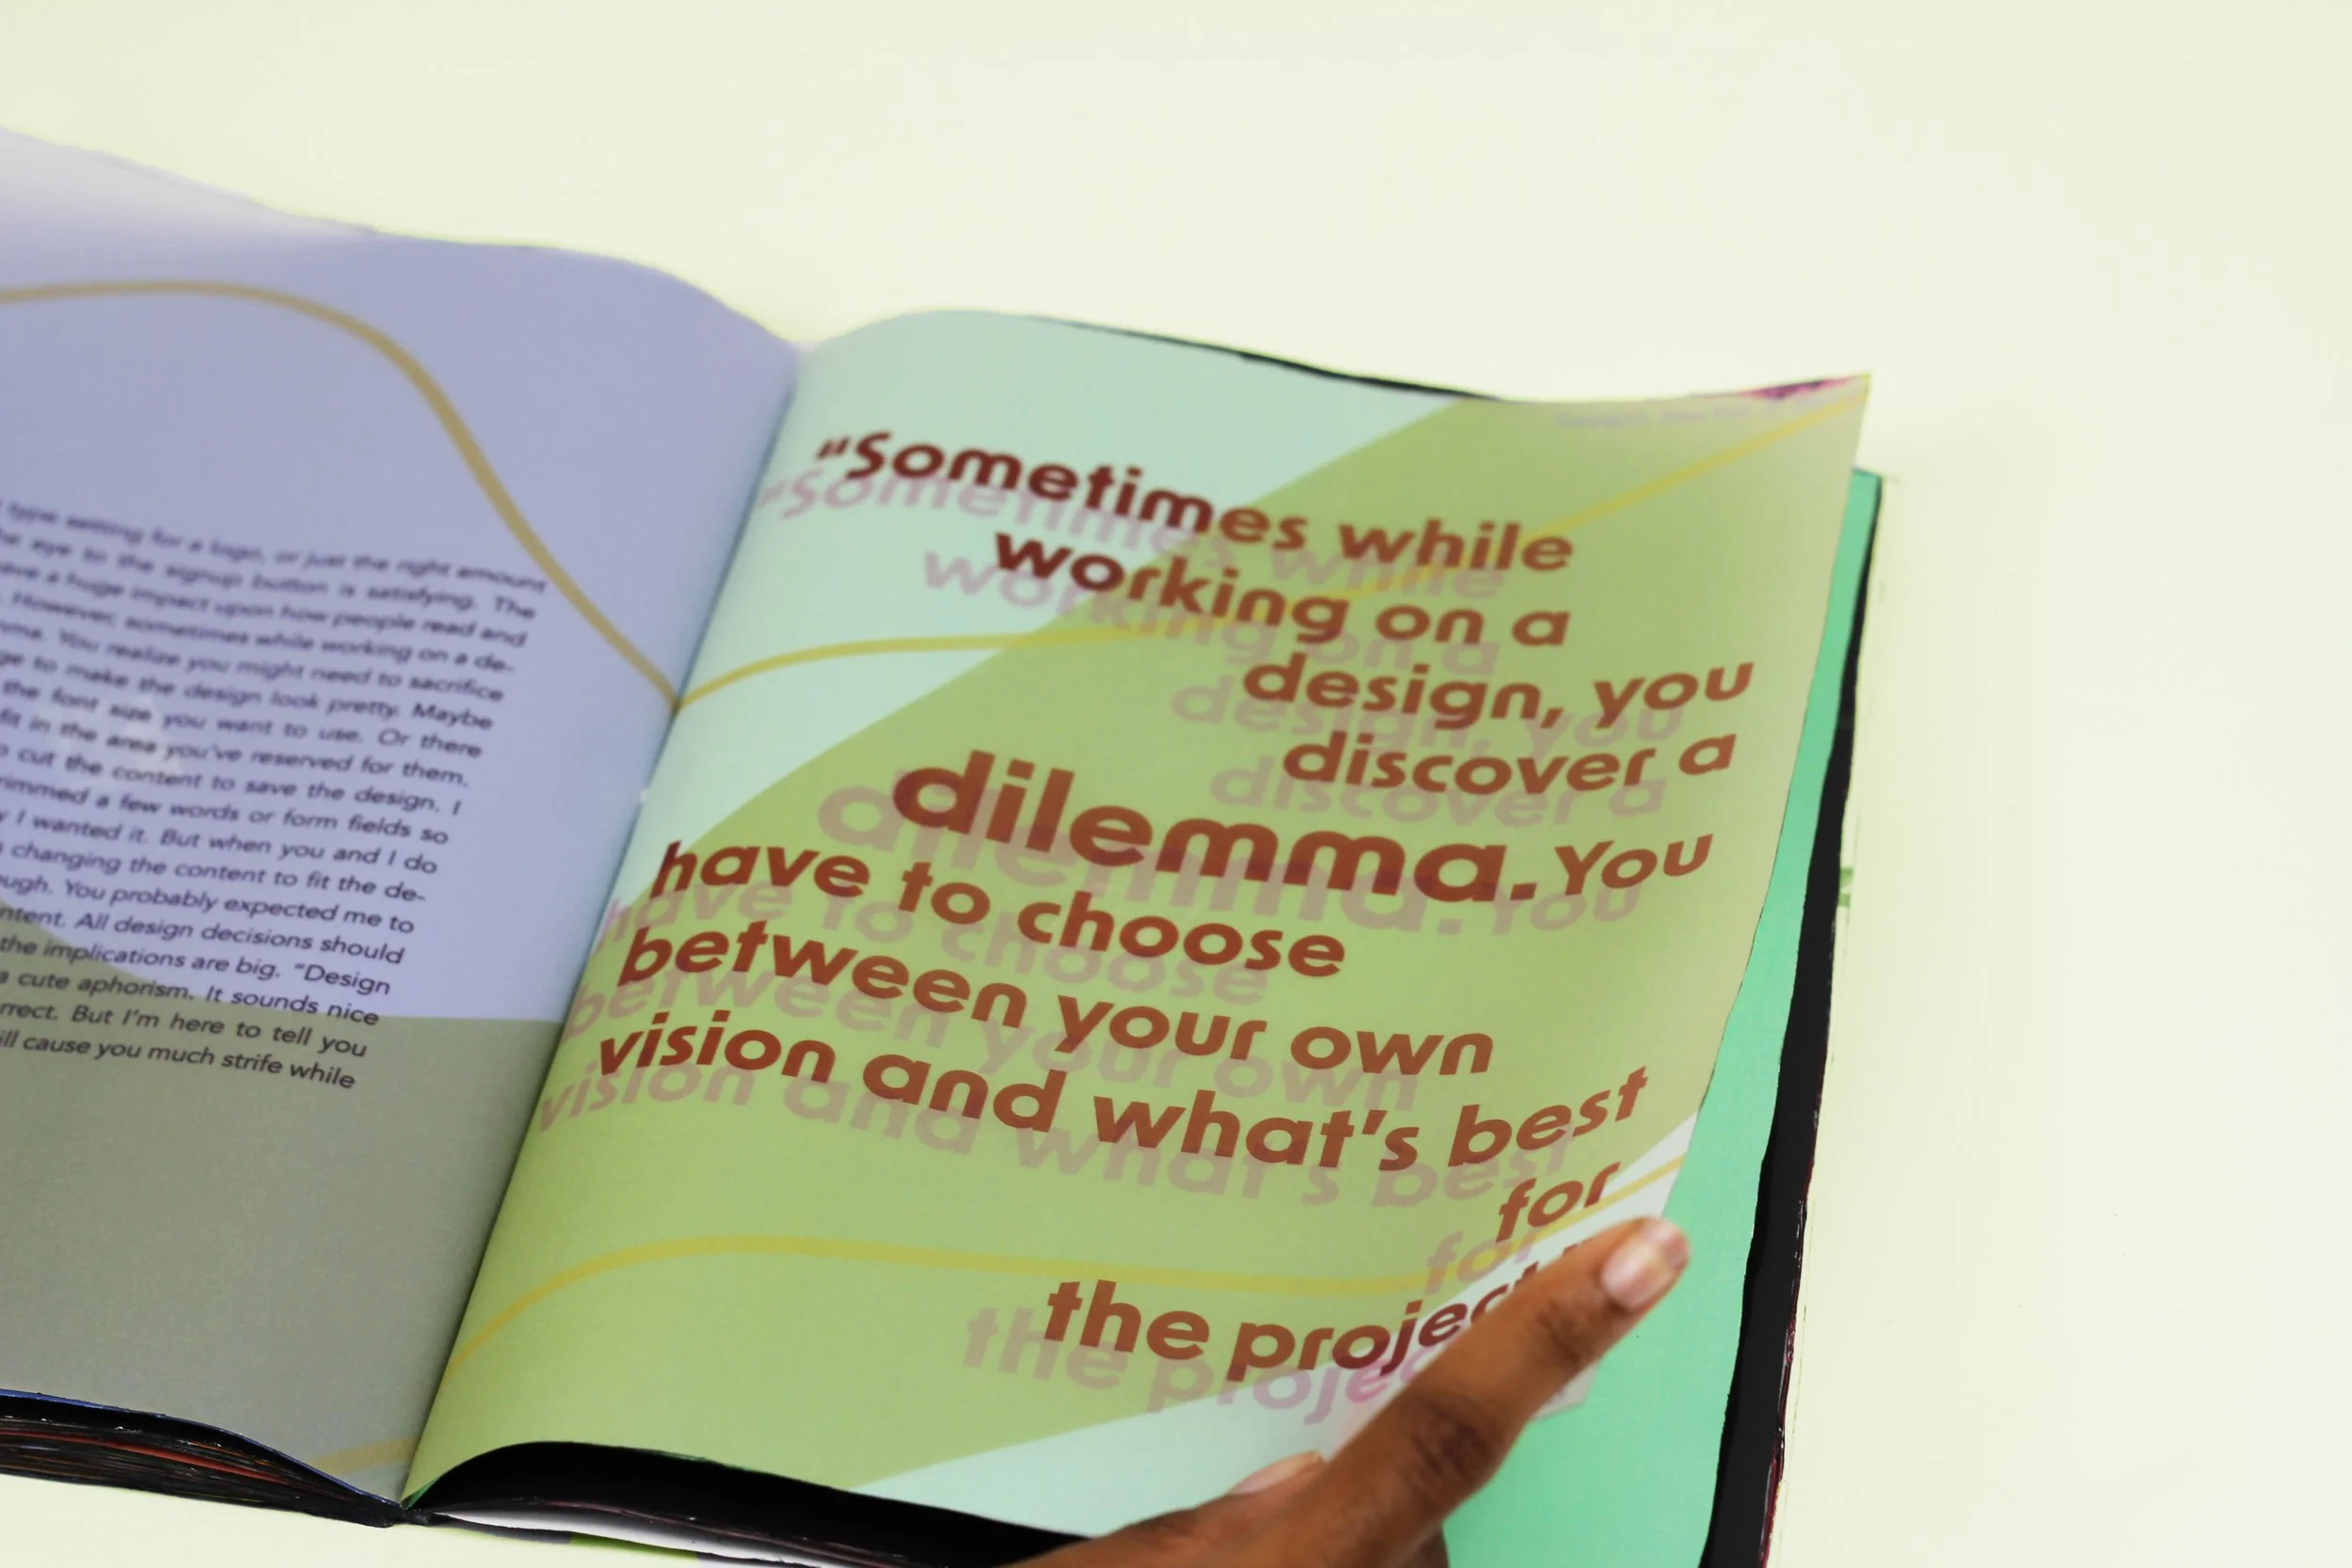 type setting for a logo, or just the right amount
he eye to the signup button is satisfying. The
ave a huge impact upon how people read and
. However, sometimes while working on a de-
mma. You realize you might need to sacrifice
ge to make the design look pretty. Maybe
the font size you want to use. Or there
fit in the area you've reserved for them.
o cut the content to save the design. I
rimmed a few words or form fields so
y I wanted it. But when you and I do
s changing the content to fit the de-
ugh. You probably expected me to
ntent. All design decisions should
the implications are big. "Design
a cute aphorism. It sounds nice
rrect. But I'm here to tell you
ill cause you much strife while
"Sometimes while
working on a
design, you
discover a
dilemma. You
have to choose
between your own
vision and what's best
for
the project